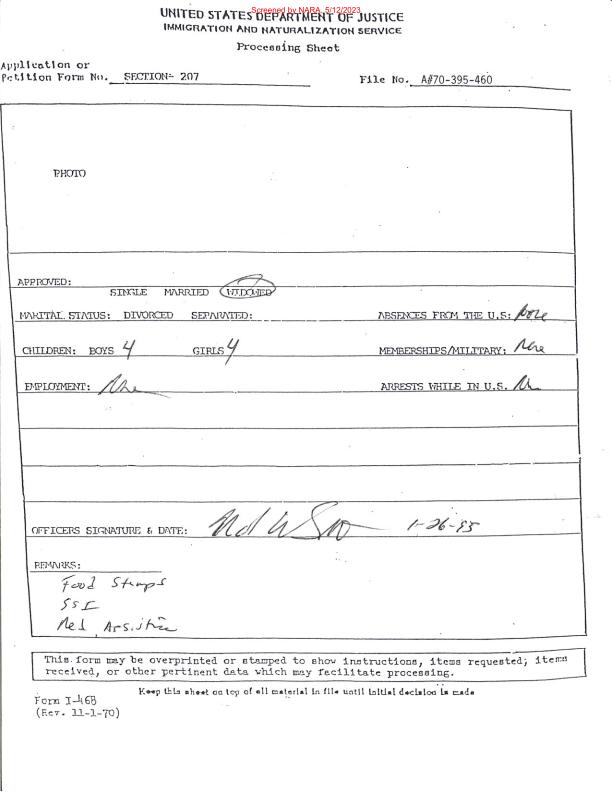 Screened by NARA, 5/12/2023
UNITED STATES DEPARTMENT OF JUSTICE
IMMIGRATION AND NATURALIZATION SERVICE
Processing Sheet
Application or
Petition Form No. SECTION- 207 File No. A#70-395-460
PHOTO
APPROVED:
SINGLE MARRIED WIDOWED
MARITAL STATUS: DIVORCED SEPARATED: ABSENCES FROM THE U.S: None
CHILDREN: BOYS 4 GIRLS 4 MEMBERSHIPS/MILITARY: None
EMPLOYMENT: None ARRESTS WHILE IN U.S.
OFFICERS SIGNATURE & DATE: 1-26-95
REMARKS:
Food Stamps
SSI
Med. Assistance
This form may be overprinted or stamped to show instructions, items requested; items
received, or other pertinent data which may facilitate processing.
Keep this sheet on top of all material in file until initial decision is made
Form I-468
(Rev. 11-1-70)